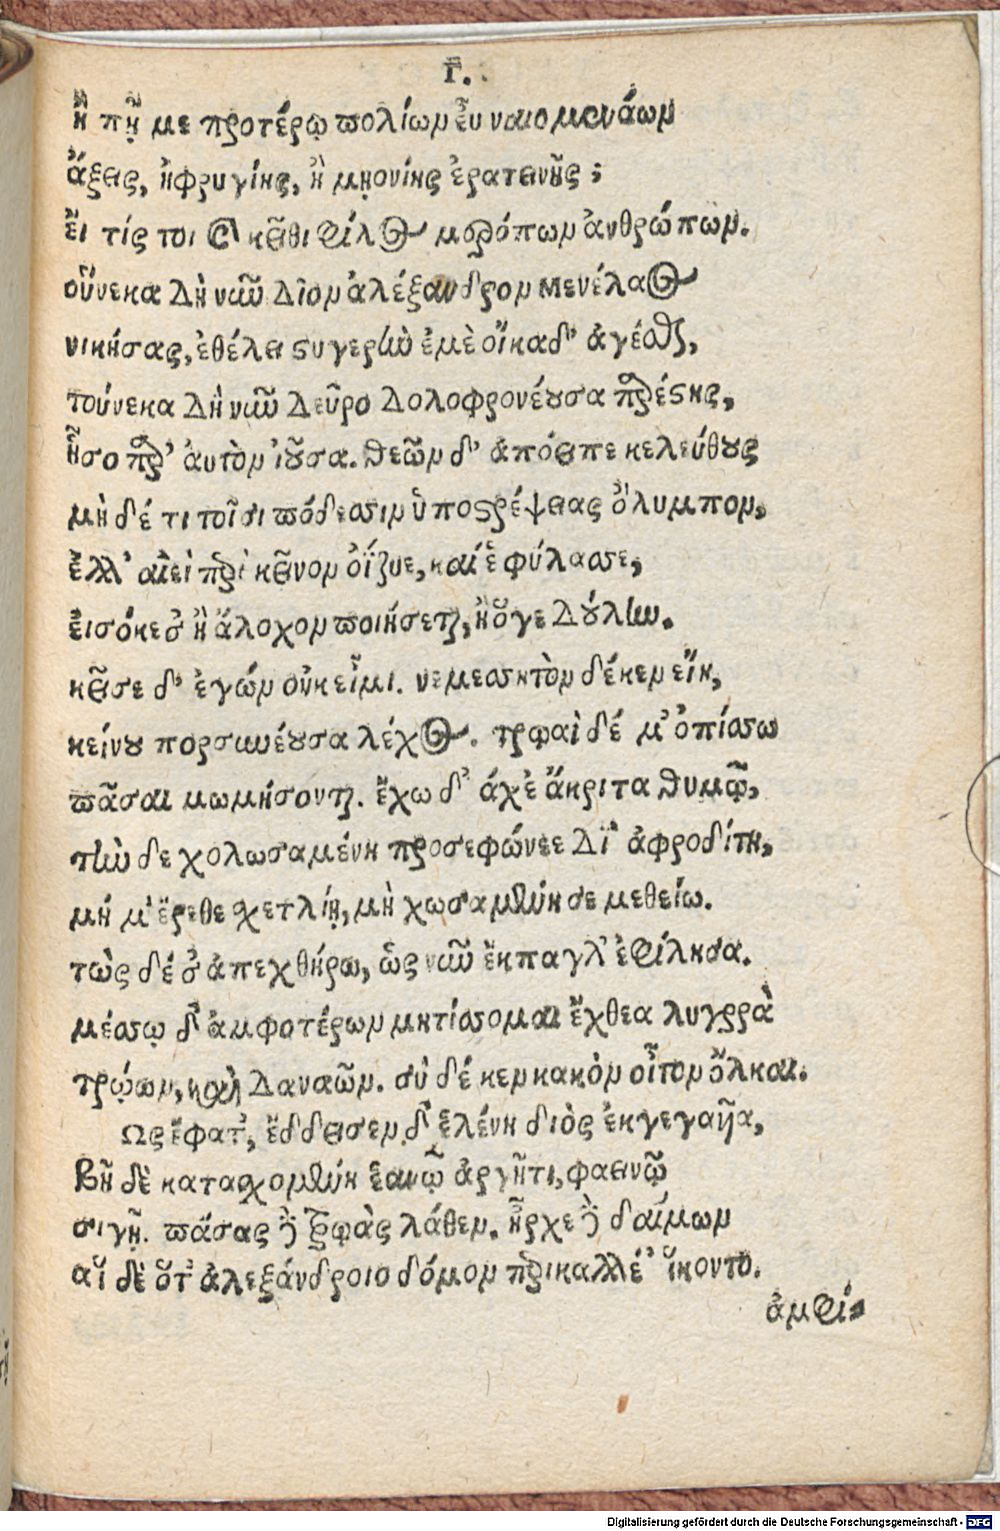 Γ.
ἢ πῄ με προτέρῳ πολίων εὖ ναιομενάων
ἄξεις, ἢ φρυγίης, ἢ μῃονίης ἐρατεινῆς;
εἴ τίς τοι καὶ κεῖθι φίλος μερόπων ἀνθρώπων.
οὕνεκα δὴ νῦν δῖον ἀλέξανδρον μενέλαος
νικήσας, ἐθέλει στυγερὴν ἐμὲ οἴκαδ' ἀγέσθαι,
τούνεκα δὴ νῦν δεῦρο δολοφρονέουσα παρέστης,
ἧσο παρ' ἀυτὸν ἰοῦσα. θεῶν δ' ἀπόειπε κελεύθους
μὴ δέ τι τοῖσι πόδεσσιν ὑποστρέψειας ὄλυμπον,
ἀλλ' αἰεὶ περὶ κεῖνον ὀΐζυε, καί ἑ φύλασσε,
εἰσόκε σ' ἢ ἄλοχον ποιήσεται, ἢ ὅγε δούλην.
κεῖσε δ' ἐγὼν οὐκ εἶμι. νεμεσσητὸν δέ κεν εἴη,
κείνου πορσυνέουσα λέχος. τρῳαὶ δέ μ' ὀπίσσω
πᾶσαι μωμήσονται. ἔχω δ' ἄχε' ἄκριτα θυμῷ,
τὴν δὲ χολωσαμένη προσεφώνεε δῖ' ἀφροδίτη,
μή μ' ἔρεθε σχετλίη, μὴ χωσαμένη σε μεθείω.
τὼς δέ σ' ἀπεχθήρω, ὡς νῦν ἔκπαγλ' ἐφίλησα.
μέσσῳ δ' ἀμφοτέρων μητίσσομαι ἔχθεα λυγρὰ
τρώων, καὶ δαναῶν. σὺ δέ κεν κακὸν οἶτον ὄληαι.
Ὣς ἔφατ', ἔδδεισεν δ' ἑλένη διὸς ἐκγεγαῆα,
Βῆ δὲ κατασχομένη ἑανῷ ἀργῆτι, φαεινῷ
σιγῇ. πάσας δὲ τρῳὰς λάθεν. ἦρχε δὲ δαίμων
αἵ δὲ ὅτ' ἀλεξάνδροιο δόμον περικαλλέ' ἵκοντο.
ἀμφί-
Digitalisierung gefördert durch die Deutsche Forschungsgemeinschaft - DFG